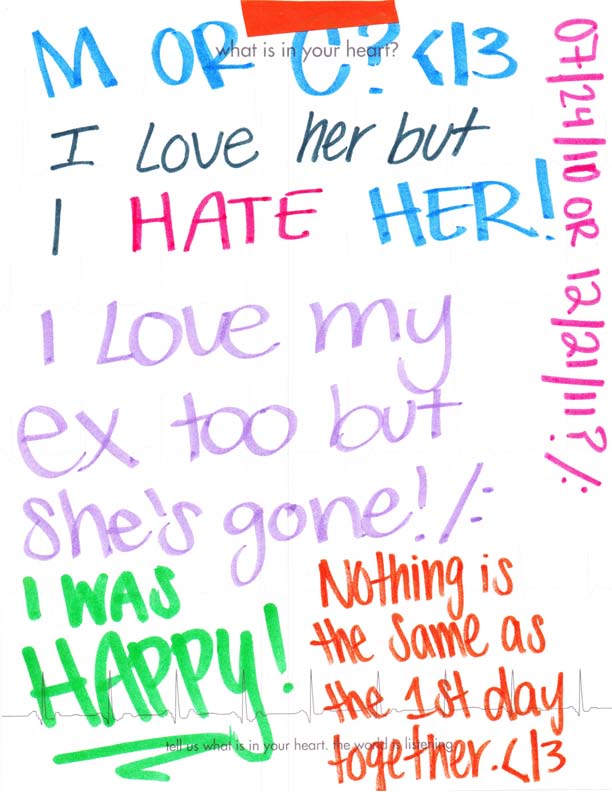 what is in your heart?
M OR C? <13
I Love her but
I HATE HER!
07/24/10 OR 12/21/11? /:
I Love my
ex too but
she's gone! /:
I WAS
HAPPY!
Nothing is
the same as
the 1st day
together. <13
tell us what is in your heart. the world is listening.